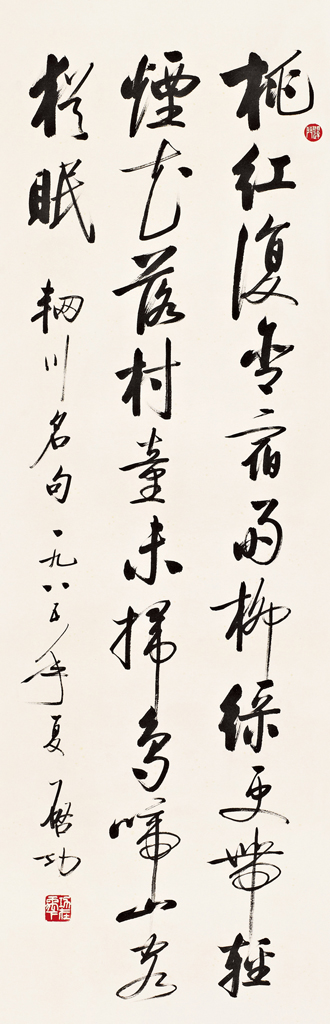 桃紅復含宿雨柳綠更帶輕
煙花落村童未掃鳥啼山客
猶眠 輞川名句 一九八五年夏 啟功